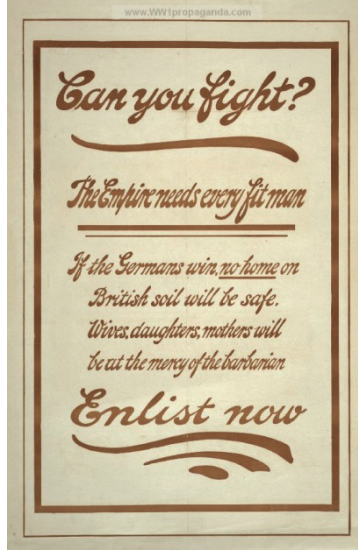 www.WW1propaganda.com
Can you fight?
The Empire needs every fit man
If the Germans win, no home on
British soil will be safe.
Wives, daughters, mothers will
be at the mercy of the barbarian
Enlist now